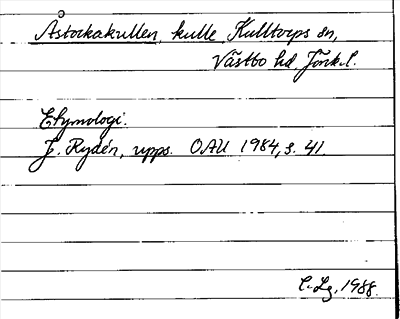 Åstockakullen, kulle, Kulltorps sn,
Västbo hd, Jönk.l.
Etymologi.
J. Rydén, upps. OAU 1984, s. 41.
C. Lg, 1988.